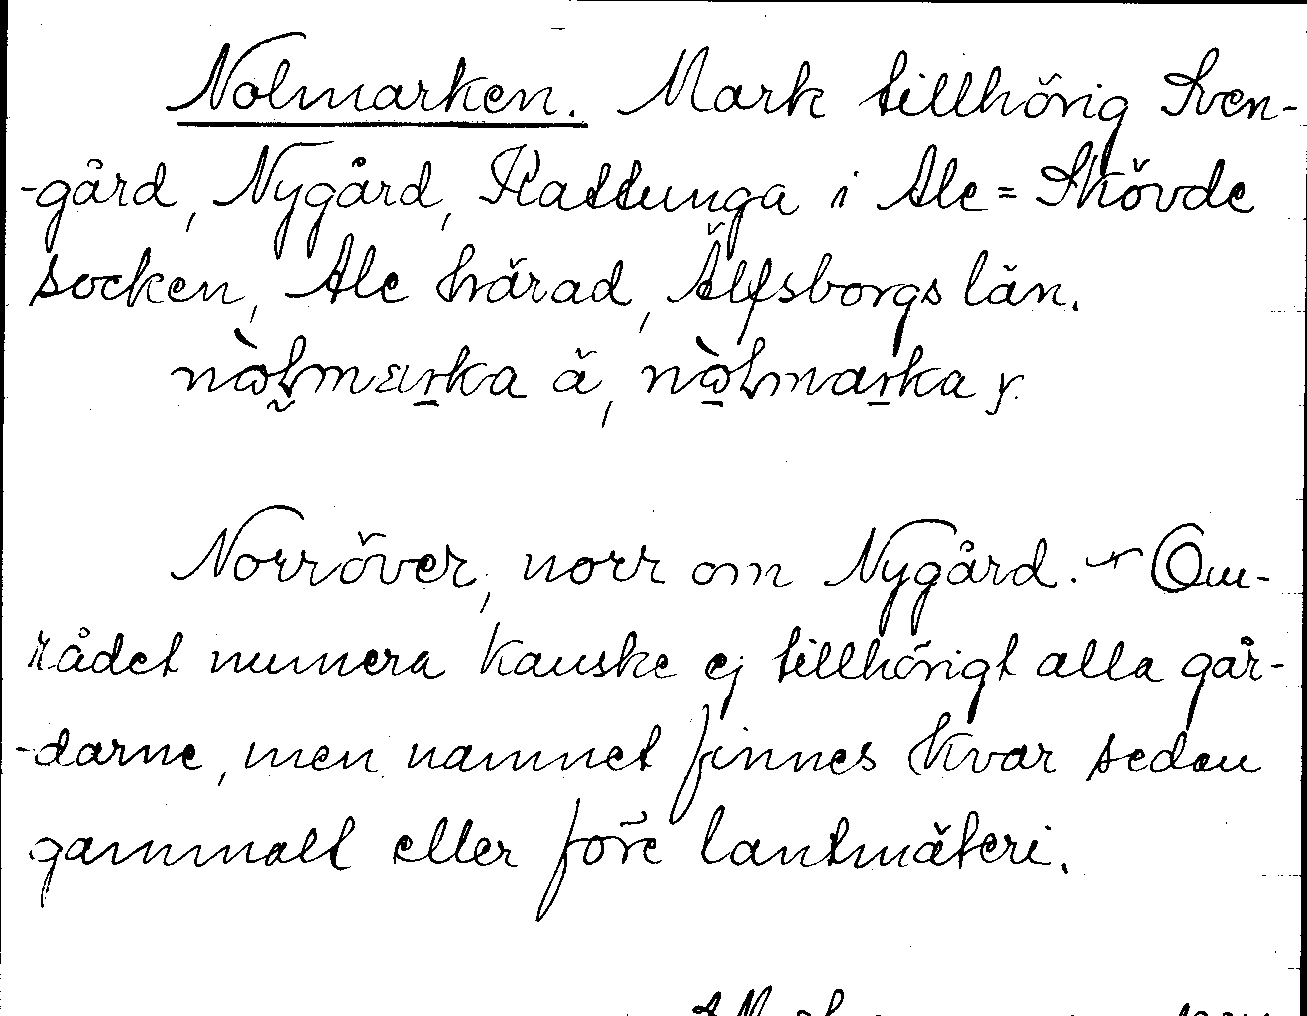 Nolmarken. Mark tillhörig Sven-
-gård, Nygård, Kattunga i Ale=Skövde
socken, Ale härad, Älfsborgs län.
nòlmarka ä, nòlmarka y.
Norröver, norr om Nygård. Om-
rådet numera kanske ej tillhörigt alla går-
-darne, men namnet finnes kvar sedan
gammalt eller före lantmäteri.